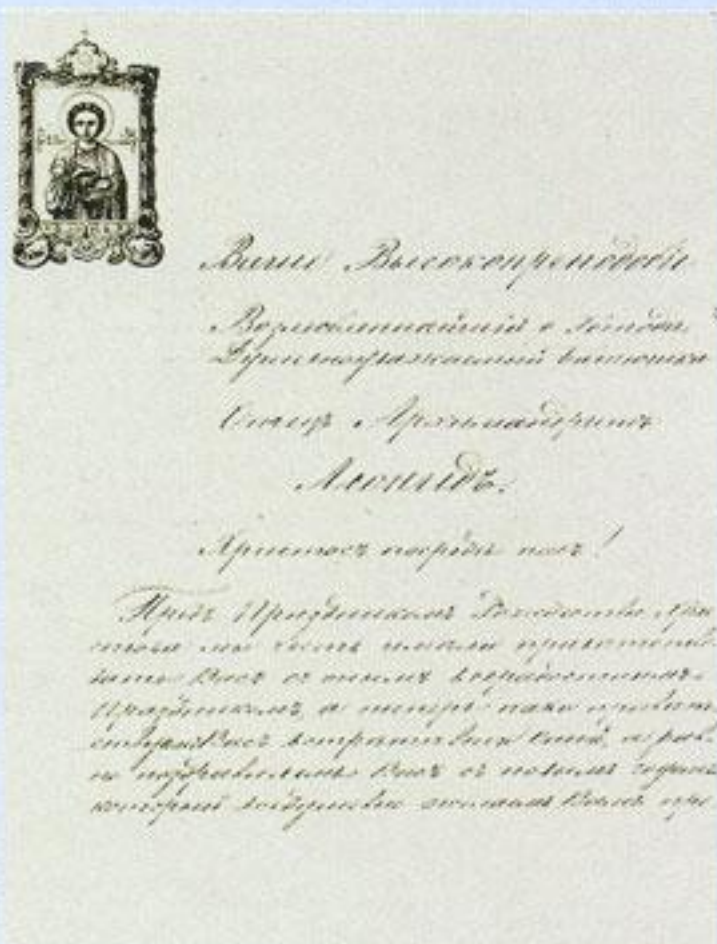 Ваше Высокопреподобіе
Возлюбленнѣйшій о Господѣ
Душеуважаемый батюшка
Отецъ Архимандритъ
Леонидъ.
Христосъ посредѣ насъ!
Предъ Праздникомъ Рождества Хри
стова мы честь имѣли привѣтство
вать Васъ съ симъ всерадостнымъ
Праздникомъ, а теперь паки привѣт
ствуемъ Васъ
поздравляемъ Васъ съ новымъ годомъ
который желаемъ Вамъ про